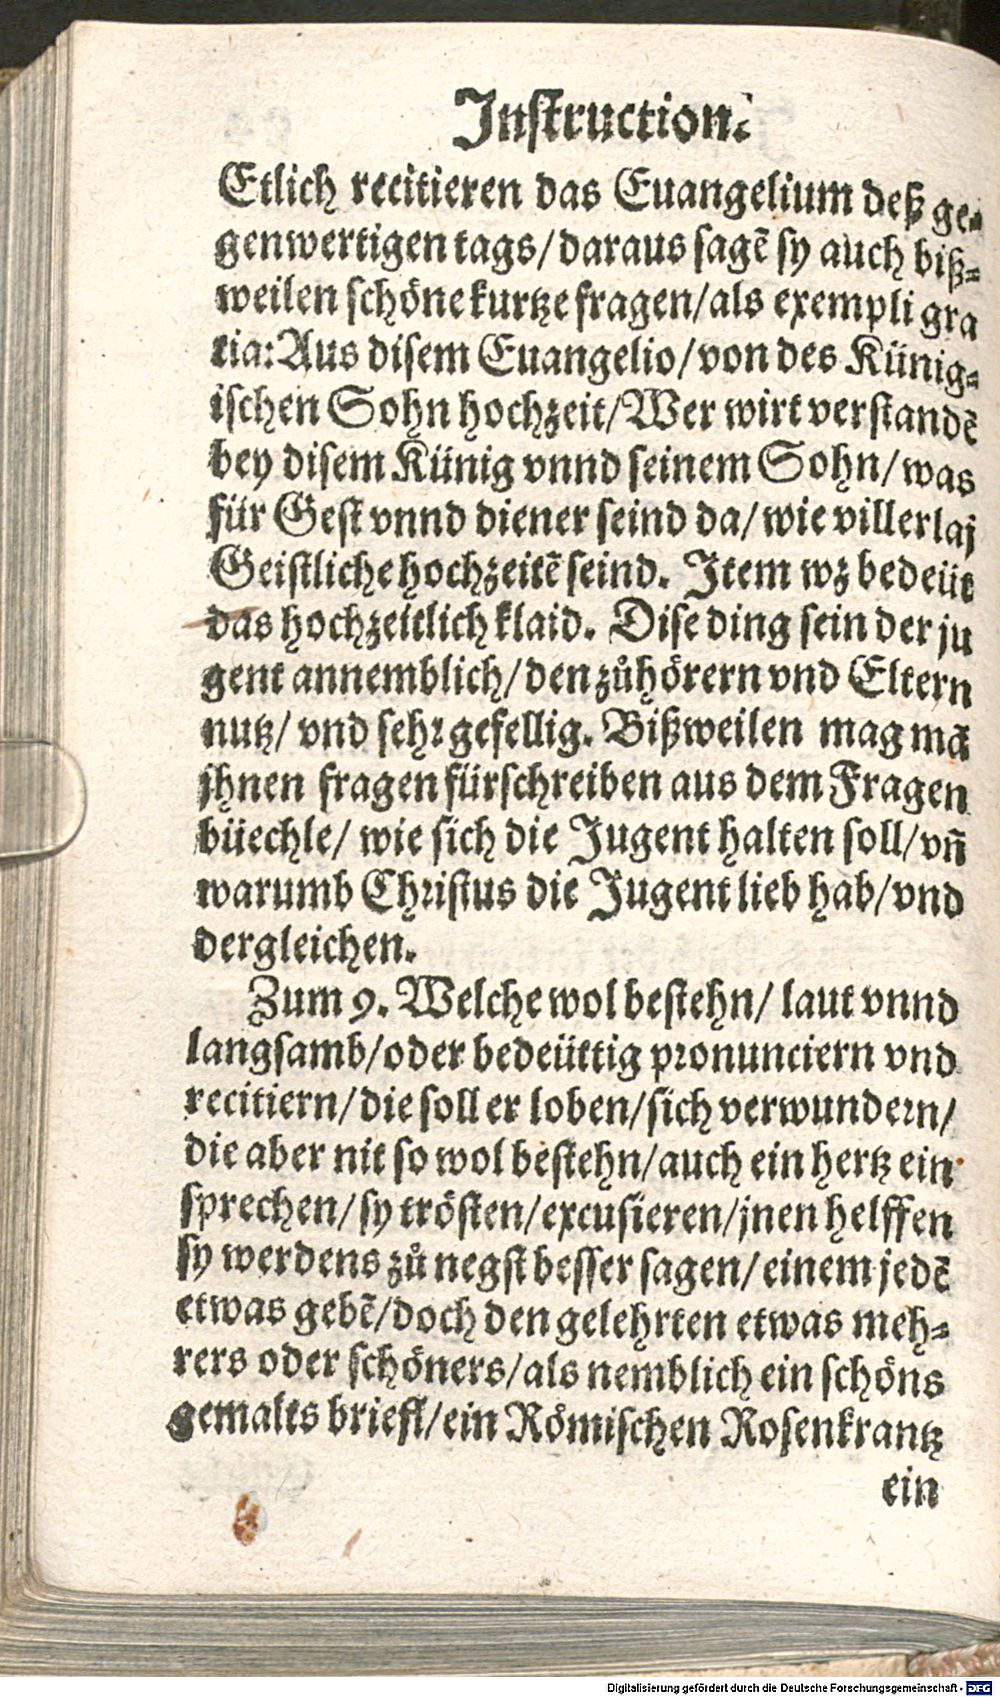 Instruction.
Etlich recitieren das Euangelium deß ge-
genwertigen tags/ daraus sagē sy auch biß-
weilen schöne kurtze fragen/ als exempli gra
tia: Aus disem Euangelio/ von des Künig-
ischen Sohn hochzeit/ Wer wirt verstandē
bey disem Künig vnnd seinem Sohn/ was
für Gest vnnd diener seind da/ wie villerlaj
Geistliche hochzeitē seind. Item wz bedeüt
das hochzeitlich klaid. Dise ding sein der ju
gent annemblich/ den zůhörern vnd Eltern
nutz/ vnd sehr gefellig. Bißweilen mag mā
jhnen fragen fürschreiben aus dem Fragen
büechle/ wie sich die Jugent halten soll/ vñ
warumb Christus die Jugent lieb hab/ vnd
dergleichen.
Zum 9. Welche wol bestehn/ laut vnnd
langsamb/ oder bedeüttig pronunciern vnd
recitiern/ die soll er loben/ sich verwundern/
die aber nit so wol bestehn/ auch ein hertz ein
sprechen/ sy trösten/ excusieren/ jnen helffen
sy werdens zů negst besser sagen/ einem jedē
etwas gebē/ doch den gelehrten etwas meh-
rers oder schöners/ als nemblich ein schöns
gemalts briefl/ ein Römischen Rosenkrantz
ein
Digitalisierung gefördert durch die Deutsche Forschungsgemeinschaft - DFG